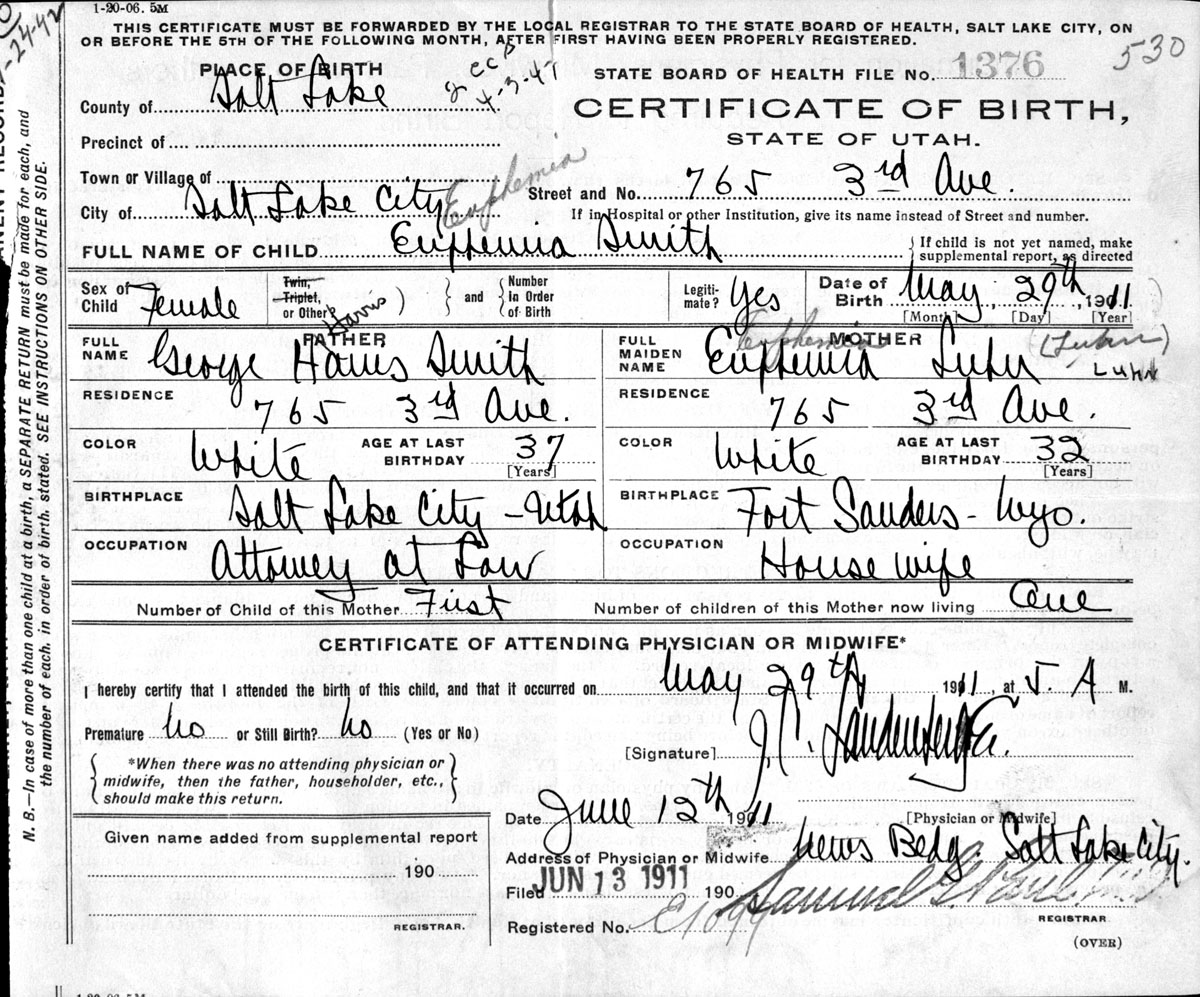 1-20-06. 5M
THIS CERTIFICATE MUST BE FORWARDED BY THE LOCAL REGISTRAR TO THE STATE BOARD OF HEALTH, SALT LAKE CITY, ON
OR BEFORE THE 5TH OF THE FOLLOWING MONTH, AFTER FIRST HAVING BEEN PROPERLY REGISTERED.
530
PLACE OF BIRTH
4-3-47
STATE BOARD OF HEALTH FILE NO. 1376
County of Salt Lake
CERTIFICATE OF BIRTH,
Precinct of
STATE OF UTAH.
Town or Village of
Euphemia
Street and No. 765 3rd Ave.
City of Salt Lake City
If in Hospital or other Institution, give its name instead of Street and number.
FULL NAME OF CHILD Euphemia Smith
If child is not yet named, make
supplemental report, as directed
Sex of
Child Female
Twin,
Triplet,
or Other?
and
Number
In Order
of Birth
Legiti-
mate? Yes
Date of
Birth May 29th, 1911
[Month] [Day] [Year]
Harris
FATHER
FULL
NAME George Harris Smith
RESIDENCE
765 3rd Ave.
COLOR White
AGE AT LAST
BIRTHDAY 37
[Years]
BIRTHPLACE
Salt Lake City - Utah
OCCUPATION
Attorney at Law
MOTHER
Euphemia
FULL
MAIDEN
NAME Euphemia Luhn
(Luhn)
LUHN
RESIDENCE
765 3rd Ave.
COLOR White
AGE AT LAST
BIRTHDAY 32
[Years]
BIRTHPLACE
Fort Sanders - Wyo.
OCCUPATION
House wife
Number of Child of this Mother First
Number of children of this Mother now living One
CERTIFICATE OF ATTENDING PHYSICIAN OR MIDWIFE*
I hereby certify that I attended the birth of this child, and that it occurred on May 29th 1911, at 5. A M.
Premature No or Still Birth? No (Yes or No)
[Signature]
*When there was no attending physician or
midwife, then the father, householder, etc.,
should make this return.
[Physician or Midwife]
Date June 12th 1911
Given name added from supplemental report
190
REGISTRAR.
Address of Physician or Midwife News Bedg. Salt Lake City.
Filed JUN 13 1911 190
Registered No.
REGISTRAR.
(OVER)
N. B.—In case of more than one child at a birth, a SEPARATE RETURN must be made for each, and
the number of each, in order of birth, stated. SEE INSTRUCTIONS ON OTHER SIDE.